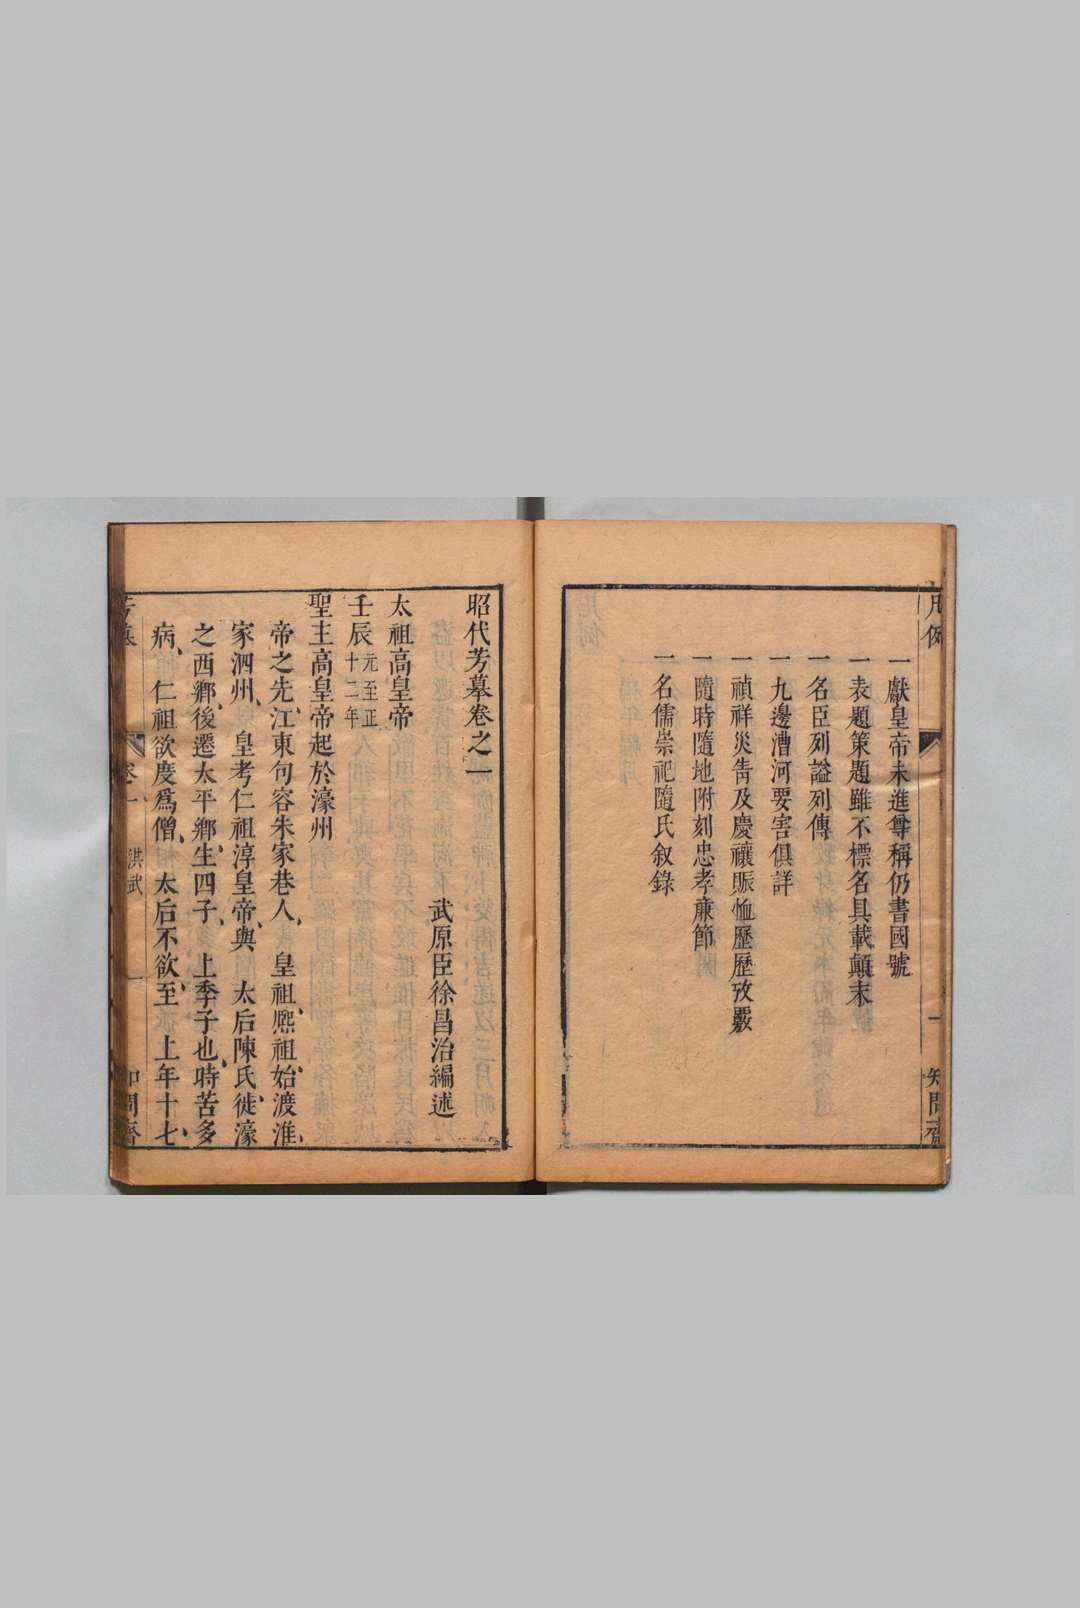 凡例
一
知問齋
一獻皇帝未進尊稱仍書國號
一表題策題雖不標名具載顛末
一名臣列謚列傳
一九邊漕河要害俱詳
一禎祥災眚及慶禳賑恤歷歷攷覈
一隨時隨地附刻忠孝亷節
一名儒崇祀隨氏叙錄
昭代芳摹卷之一
武原臣徐昌治編述
太祖高皇帝
壬辰元至正十二年
聖主高皇帝起於濠州
帝之先、江東句容朱家巷人、皇祖熈祖、始渡淮、
家泗州、皇考仁祖淳皇帝、與太后陳氏、徙濠
之西鄉、後遷太平鄉、生四子、上季子也、時苦多
病、仁祖欲度爲僧、太后不欲、至上年十七、
芳摹
卷一
洪武
一
知問齋